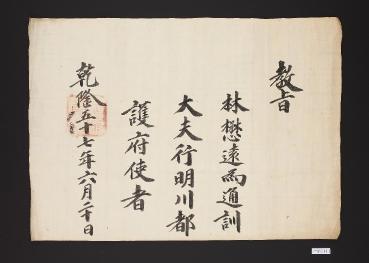 教旨
林懋遠爲通訓
大夫行明川都
護府使者
乾隆五十七年六月二十日